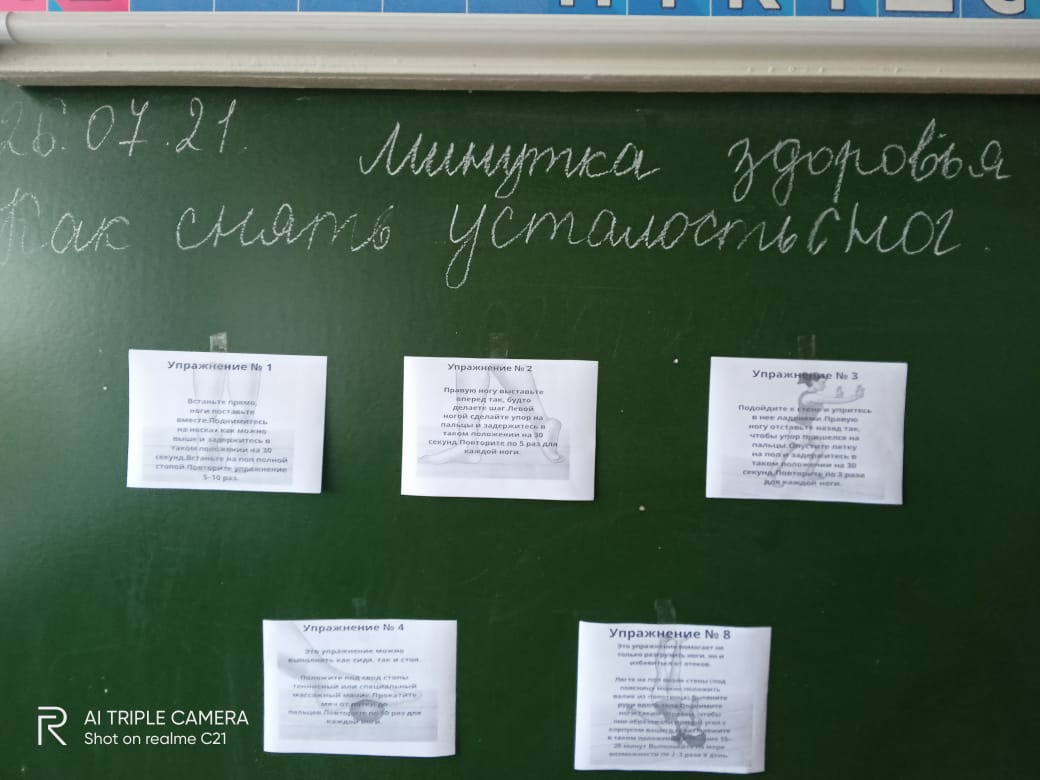 26.07.21. Минутка здоровья
Как снять усталость с ног.
Упражнение № 1
Встаньте прямо,
ноги поставьте
вместе.Поднимитесь
на носках как можно
выше и задержитесь в
таком положении на 30
секунд.Встаньте на пол полной
стопой.Повторите упражнение
5–10 раз.
Упражнение № 2
Правую ногу выставьте
вперед так, будто
делаете шаг.Левой
ногой сделайте упор на
пальцы и задержитесь в
таком положении на 30
секунд.Повторите по 5 раз для
каждой ноги.
Упражнение № 3
Подойдите к стене и упритесь
в нее ладонями.Правую
ногу отставьте назад так,
чтобы упор пришелся на
пальцы.Опустите пятку
на пол и задержитесь в
таком положении на 30
секунд.Повторите по 3 раза
для каждой ноги.
Упражнение № 4
Это упражнение можно
выполнять как сидя, так и стоя.
Положите под свод стопы
теннисный или специальный
массажный мячик.Прокатите
мяч от пятки до
пальцев.Повторите по 10 раз для
каждой ноги.
Упражнение № 8
Это упражнение помогает не
только разгрузить ноги, но и
избавиться от отеков.
Лягте на пол возле стены (под
поясницу можно положить
валик из полотенца).Вытяните
руки вдоль тела.Поднимите
ноги таким образом, чтобы
они образовали прямой угол с
корпусом
в таком положении 15–
20 минут.Выполняйте по мере
возможности по 2–3 раза в день.
AI TRIPLE CAMERA
Shot on realme C21